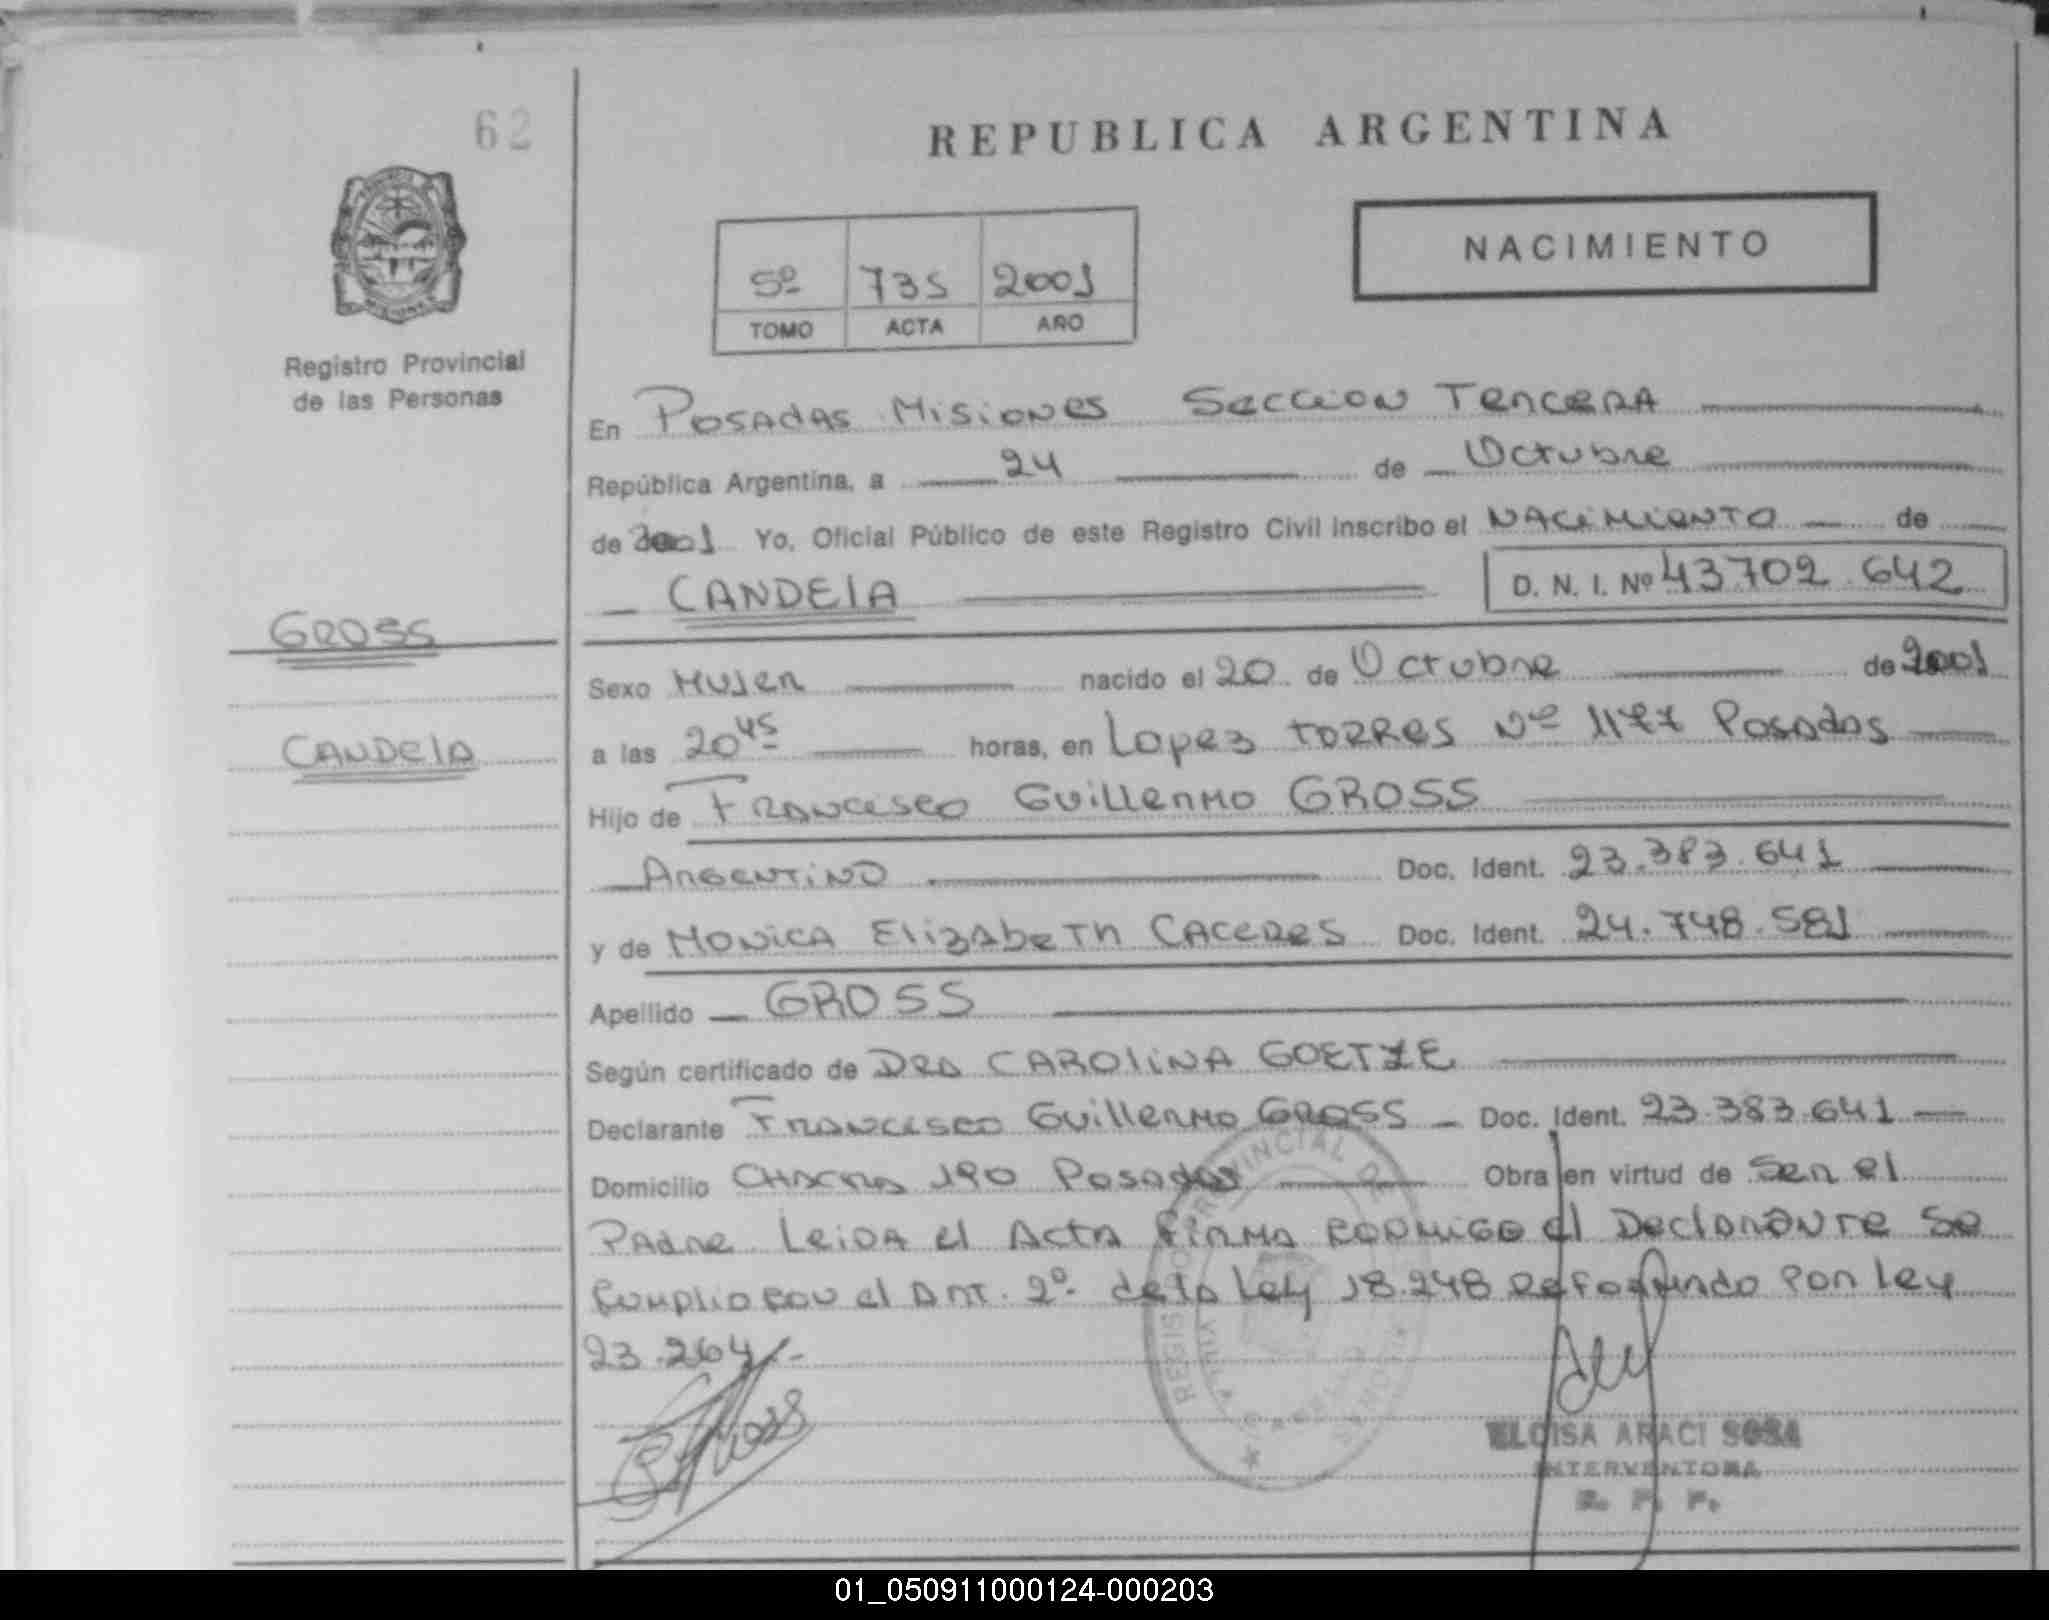 62
REPUBLICA ARGENTINA
NACIMIENTO
5º 735 2001
TOMO ACTA AÑO
Registro Provincial
de las Personas
En Posadas Misiones Seccion Tercera
República Argentina, a 24 de Octubre
de 2001 Yo, Oficial Público de este Registro Civil inscribo el NACIMIENTO de
CANDELA D. N. I. Nº 43702.642
GROSS
CANDELA
Sexo Mujer nacido el 20 de Octubre de 2001
a las 20 45 horas, en Lopez TORRES Nº 1177 Posadas
Hijo de Francisco Guillermo GROSS
Argentino Doc. Ident. 23.383.641
y de Monica Elizabeth Caceres Doc. Ident. 24.748.581
Apellido GROSS
Según certificado de Dra CAROLINA GOETZE
Declarante Francisco Guillermo GROSS Doc. Ident. 23.383.641
Domicilio Chacra 190 Posadas Obra en virtud de Ser el
Padre Leida el Acta Firma conmigo el Declarante Se
cumplio con el Art. 2º de la Ley 18.248 Por Ley
23.264.-
Gross
REGISTRO PROVINCIAL DE
ELOISA ARACI SOSA
INTERVENTORA
R. P. P.
01_050911000124-000203